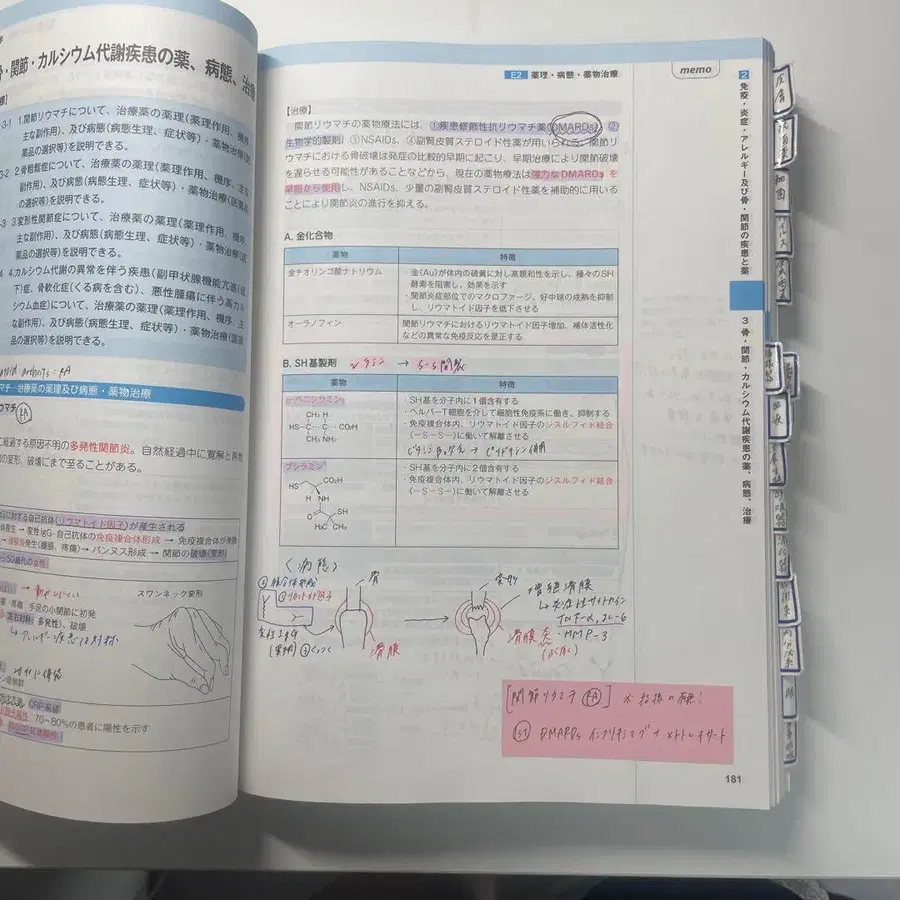 骨・関節・カルシウム代謝疾患の薬、病態、治療
1.関節リウマチについて、治療薬の薬理(薬理作用、機序、
主な副作用)、及び病態(病態生理、症状等)・薬物治療(医
薬品の選択等)を説明できる。
2.骨粗鬆症について、治療薬の薬理(薬理作用、機序、主な
副作用)、及び病態(病態生理、症状等)・薬物治療(医薬品
の選択等)を説明できる。
3.変形性関節症について、治療薬の薬理(薬理作用、機序、
主な副作用)、及び病態(病態生理、症状等)・薬物治療(医
薬品の選択等)を説明できる。
4.カルシウム代謝の異常を伴う疾患(副甲状腺機能亢進(低
下)症、骨軟化症(くる病を含む)、悪性腫瘍に伴う高カル
シウム血症)について、治療薬の薬理(薬理作用、機序、主
な副作用)、及び病態(病態生理、症状等)・薬物治療(医薬
品の選択等)を説明できる。
マチ 治療薬の薬理及び病態・薬物治療
ウマチ RA
に経過する原因不明の多発性関節炎。自然経過中に寛解と再燃
の変形、破壊にまで至ることがある。
に対する自己抗体(リウマトイド因子)が産生される
体産生→変性IgG-自己抗体の免疫複合体形成→免疫複合体が骨膜
→滑膜炎発生(腫脹、疼痛)→パンヌス形成→関節の破壊(変形)
ら50歳代の女性
スワンネック変形
疼痛:手足の小関節に初発
(左右対称、多発性)、破壊
CRP高値
70〜80%の患者に陽性を示す
E2 薬理・病態・薬物治療
memo
【治療】
関節リウマチの薬物療法には、①疾患修飾性抗リウマチ薬(DMARDs)、②
生物学的製剤、③NSAIDs、④副腎皮質ステロイド性薬が用いられる。関節リ
ウマチにおける骨破壊は発症の比較的早期に起こり、早期治療により関節破壊
を遅らせる可能性があることなどから、現在の薬物療法は強力なDMARDs を
早期から使用し、NSAIDs、少量の副腎皮質ステロイド性薬を補助的に用いる
ことにより関節炎の進行を抑える。
A. 金化合物
薬物 特徴
金チオリンゴ酸ナトリウム ・金(Au)が体内の硫黄に対し高親和性を示し、種々のSH
酵素を阻害し、効果を示す
・関節炎症部位でのマクロファージ、好中球の成熟を抑制
し、リウマトイド因子を低下させる
オーラノフィン 関節リウマチにおけるリウマトイド因子増加、補体活性化
などの異常な免疫反応を是正する
B. SH基製剤
薬物 特徴
D-ペニシラミン ・SH基を分子内に1個含有する
・ヘルパーT細胞を介して細胞性免疫系に働き、抑制する
・免疫複合体内、リウマトイド因子のジスルフィド結合
(−S−S−)に働いて解離させる
CH₃ H
HS-C-C-CO₂H
CH₃ NH₂
ブシラミン ・SH基を分子内に2個含有する
・免疫複合体内、リウマトイド因子のジスルフィド結合
(−S−S−)に働いて解離させる
CO₂H
HS
NH
O
SH
H₃C CH₃
〈病態〉
骨
滑膜
増殖滑膜
↳炎症性サイトカイン
TNF-α, IL-6
滑膜炎
・MMP-3
[関節リウマチ RA]
DMARDs インフリキシマブ メトトレキサート
181
2 免疫・炎症・アレルギー及び骨・関節の疾患と薬
3 骨・関節・カルシウム代謝疾患の薬、病態、治療